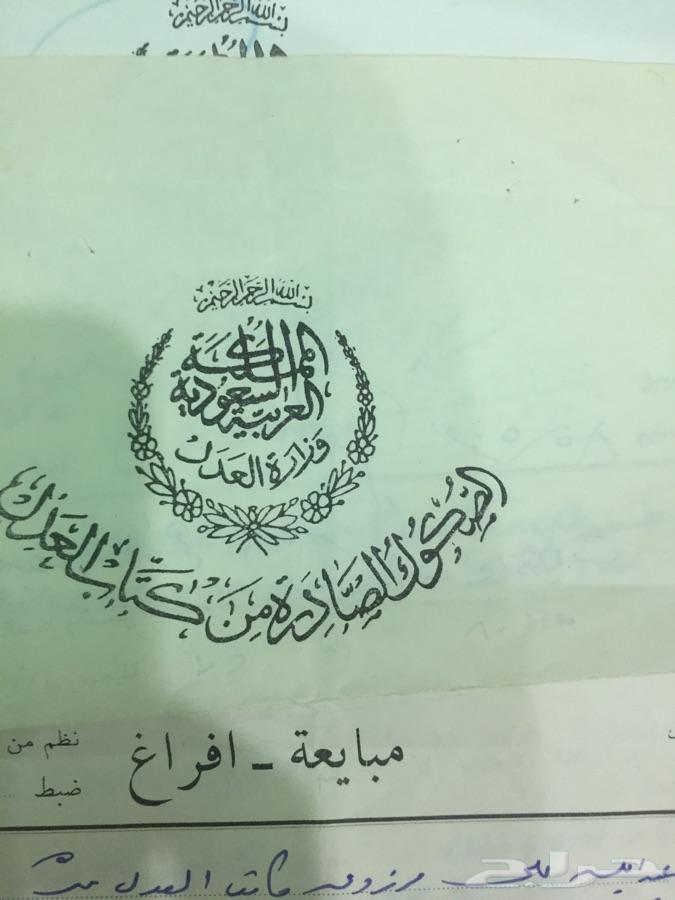 بسم الله الرحمن الرحيم
بسم الله الرحمن الرحيم
المملكة
العربية السعودية
وزارة العدل
الصكوك الصادرة من كتاب العدل
مبايعة - افراغ
نظم من
ضبط
علي مرزوق كاتب العدل
حراج